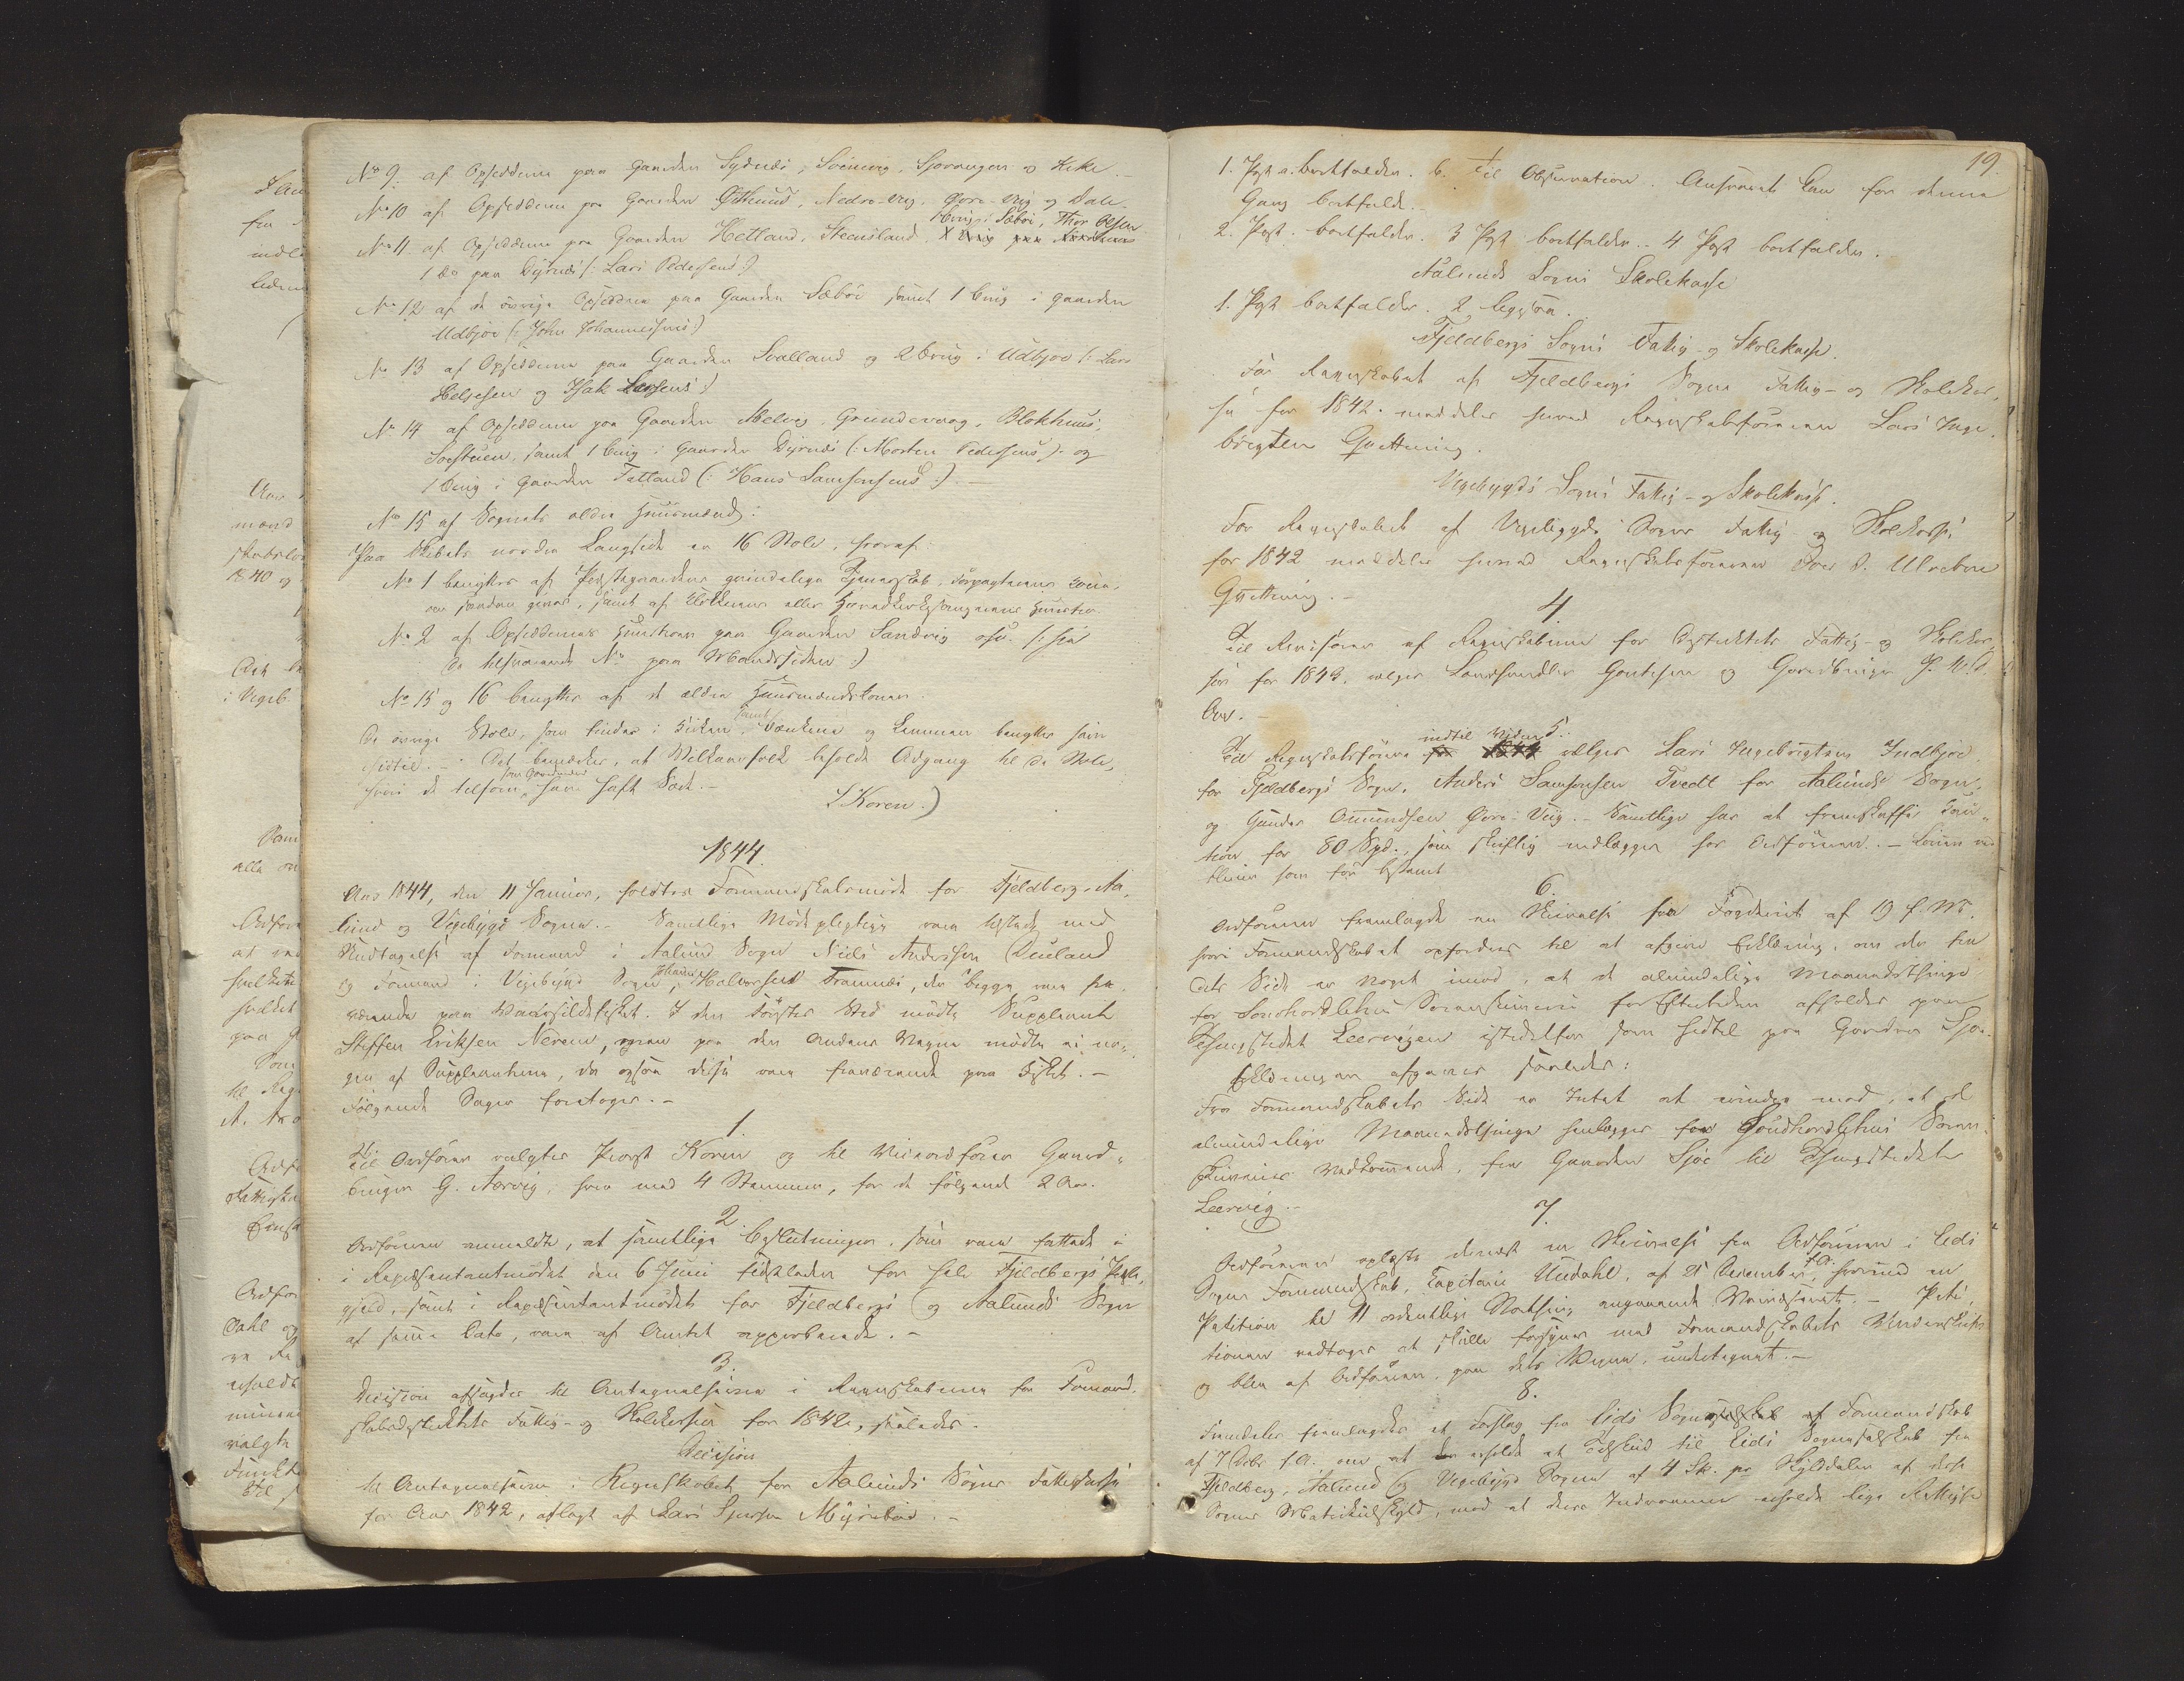 No 9. af Opsidderne paa Gaarden Sydnæs, Svinevig, Sjovangen og Eeke.
No 10 af Opsidderne paa Gaarden Østhuus, Nedre-Vig, Øvre-Vig og Dale.
No 11 af Opsidderne paa Gaarden Hetland, Steensland, 1 Brug i Sæbøe, Thor Olsens
1 do paa Dyrnæs (: Lars Pedersens :)
No 12 af de øvrige Opsiddere paa Gaarden Sæbøe samt 1 Brug i Gaarden
Udbjoe (: John Johannessens :)
No 13 af Opsidderne paa Gaarden Svalland og 2 Brug i Udbjoe (: Lars
Helgesen og Isak Larsens :)
No 14 af Opsidderne paa Gaarden Melvig, Grundevaag, Blokhuus,
samt 1 Brug i Gaarden Dyrnæs (: Morten Pedersens :) og
1 Brug i Gaarden Tatland (: Hans Samsonsens :). —
No 15 af Sognets ældre Huusmænd.
Paa Skibets nordre Langside er 16 Stole, hvoraf:
No 1 benyttes af Præstegaardens qvindelige Tjenerskab, Forpagterens Kone,
om saadan gives, samt af Klokkerens eller Hovedkirkesangerens Huustro.
No 2 af Opsiddernes Hustruer paa Gaarden Sandvig osv. (: see
de tilsvarende No paa Mandssiden :)
No 15 og 16 benyttes af de ældre Huusmandskoner.
De øvrige Stole, som findes i Kirken, samt Bænkene og Lemmen benyttes som
hidtil. — Det bemærkes, at Vilkaarsfolk beholde Adgang til de Stole,
hvori de tilforn som Gaardmænd have havt Sæde. —
J Koren.)
1844.
Aar 1844, den 11 Januar, holdtes Formandskabsmøde for Fjeldberg, Aa-
lund og Vigebygd Sogne. — Samtlige Mødepligtige vare tilstede med
Undtagelse af Formand i Aalund Sogn Niels Andersen Dueland
og Formand i Vigebygd Sogn, Johannes Halvorsen Framnæs, der begge vare fra-
værende paa Vaarsildefisket. I den Førstes Sted mødte Suppleant
Steffen Eriksen Nerem, men paa den Andens Vegne mødte ei no-
gen af Suppleanterne, da ogsaa disse vare fraværende paa Fisket. —
Følgende Sager foretoges. —
1.
Til Ordfører valgtes Provst Koren og til Viceordfører Gaard-
bruger G. Aarvig, hver med 4 Stemmer, for de følgende 2 Aar.
2.
Ordføreren anmeldte, at samtlige Beslutninger, som vare fattede i
i Repræsentantmødet den 6 Juni sidstleden for hele Fjeldbergs Præste-
gjeld, samt i Repræsentantmødet for Fjeldbergs og Aalunds Sogn
af samme Dato, vare af Amtet approberede. —
3.
Decision afsagdes til Antegnelserne i Regnskaberne for Formand-
skabsdistriktets Fattig- og Skolekasser for 1842, saaledes.
Decision
til Antegnelserne i Regnskabet for Aalunds Sogns Fattigkasse
for Aar 1842, aflagt af Lars Sjursen Myrebøe. —
19.
1. Post a. bortfalder. b. Til Observation. Ansvaret kan for denne
Gang bortfalde. —
2. Post bortfalder. 3 Post bortfalder. — 4 Post bortfalder. —
Aalunds Sogns Skolekasse
1. Post bortfalder. 2 ligesaa.
Fjeldbergs Sogns Fattig- og Skolekasse.
For Regnskabet af Fjeldbergs Sogns Fattig- og Skolekas-
se for 1842 meddeles herved Regnskabsføreren Lars Inge-
brigtsen Qvittering.
Vigebygds Sogns Fattig- og Skolekasse.
For Regnskabet af Vigebygds Sogns Fattig og Skolekasse
for 1842 meddeles herved Regnskabsføreren Iver S. Ulvebere
Qvittering. —
4.
Til Revisorer af Regnskaberne for Distriktets Fattig- og Skolekas-
ser for 1843, vælges Landhandler Gontesen og Gaardbruger
5.
Til Regnskabsførere indtil Videre vælges Lars Ingebrigtsen Indbjoe
for Fjeldbergs Sogn, Anders Samsonsen Tvedt for Aalunds Sogn,
og Gunder Amundsen Øvre-Viig. — Samtlige har at fremskaffe Cau-
tion for 80 Spd., som skriftlig nedlægges hos Ordføreren. — Lønnen ved-
bliver som før bestemt.
6.
Ordføreren fremlagde en Skrivelse fra Fogderiet af 19 f. M.
hvori Formandskabet opfordres til at afgive Erklæring, om der fra
dets Side er Noget imod, at de almindelige Maanedsthinge
for Søndhordlehns Sorenskriveri for Eftertiden afholdes paa
Thingstedet Leervigen istedetfor som hidtil paa Gaarden Sjoe.
Erklæringen afgaves saaledes:
Fra Formandskabets Side er Intet at erindre mod, at de
almindelige Maanedsthinge henlægges for Søndhordlehns Soren-
skriveries Vedkommende, fra Gaarden Sjoe til Thingstedet
Leervig. —
7.
Ordføreren oplæste dernæst en Skrivelse fra Ordføreren i Eids
Sogns Formandskab, Capitain Undahl, af 21 December f. A., hvormed en
Petition til 11 ordentlige Storthing angaaende Værnepligt. — Peti-
tionen vedtoges at skulle forsynes med Formandskabets Underskrift
og blev af Ordføreren, paa dets Vegne, undertegnet. —
8.
Fremdeles fremlagdes et Forslag fra Eids Sogns Formandskab
af 7 Octbr f. A. om at erholde et Tilskud til Eids Sogneselskab fra
Fjeldberg, Aalund og Vigebygd Sogne af 4 Sk. pr Skylddaler af disse
Sognes Matrikulskyld, mod at disse Indvaanere erholde lige Rettighed